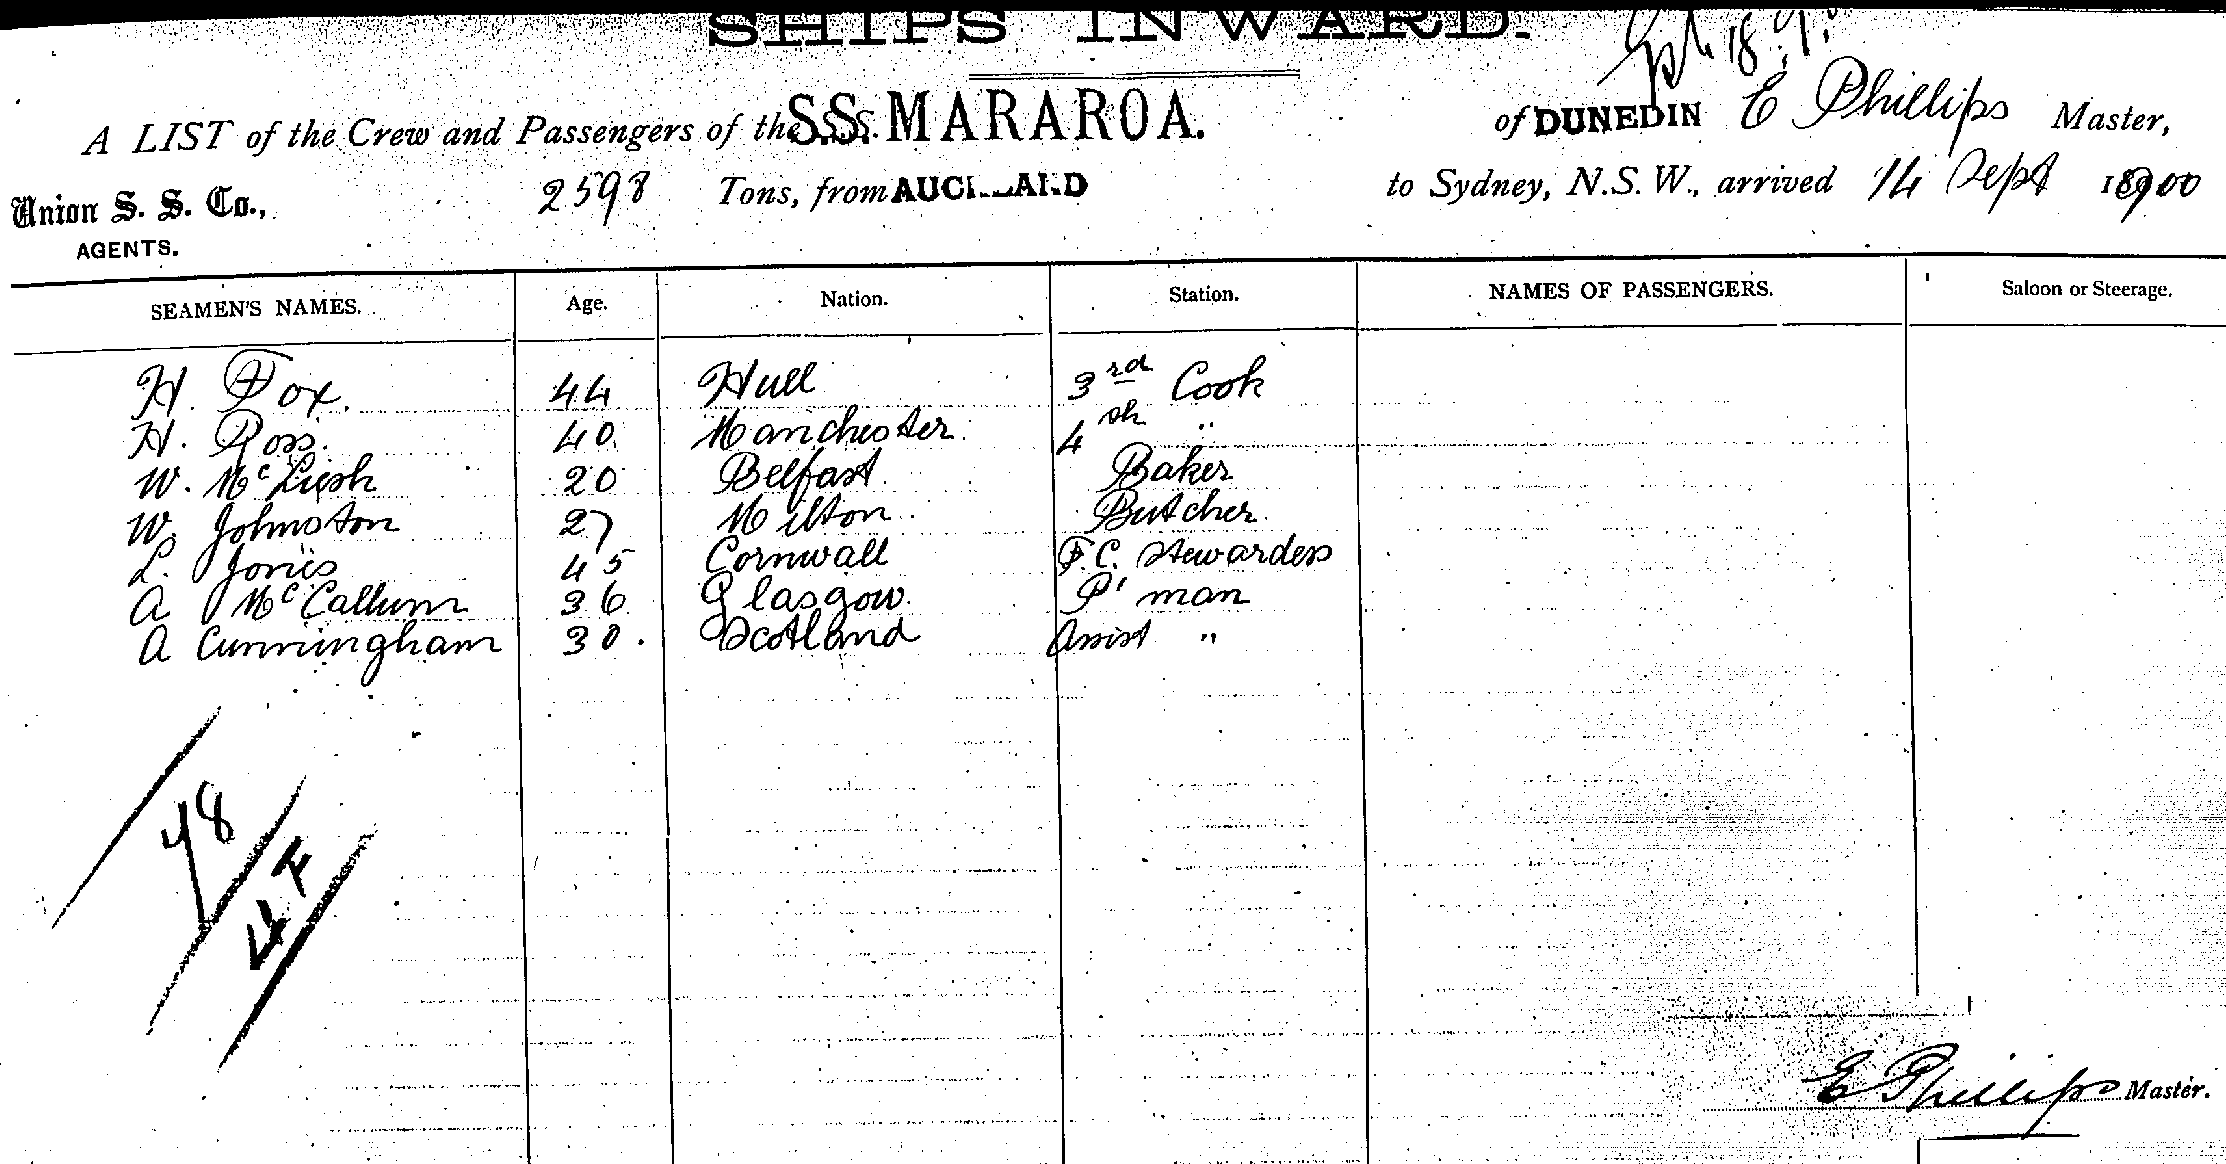 SHIPS INWARD.
A LIST of the Crew and Passengers of the S.S. MARAROA. of DUNEDIN E Phillips Master,
Union S. S. Co., AGENTS. 2598 Tons, from AUCKLAND to Sydney, N.S.W., arrived 14 Sept 1900
SEAMEN'S NAMES. Age. Nation. Station. NAMES OF PASSENGERS. Saloon or Steerage.
H. Fox. 44 Hull 3rd Cook
H. Ross. 40 Manchester 4th "
W. McLiesh 20 Belfast Baker
W. Johnston 27 Milton Butcher
L. 45 Cornwall F.C. Stewardess
A McCallum 36 Glasgow P'man
A Cunningham 30. Scotland Assist "
48
E Phillips Master.